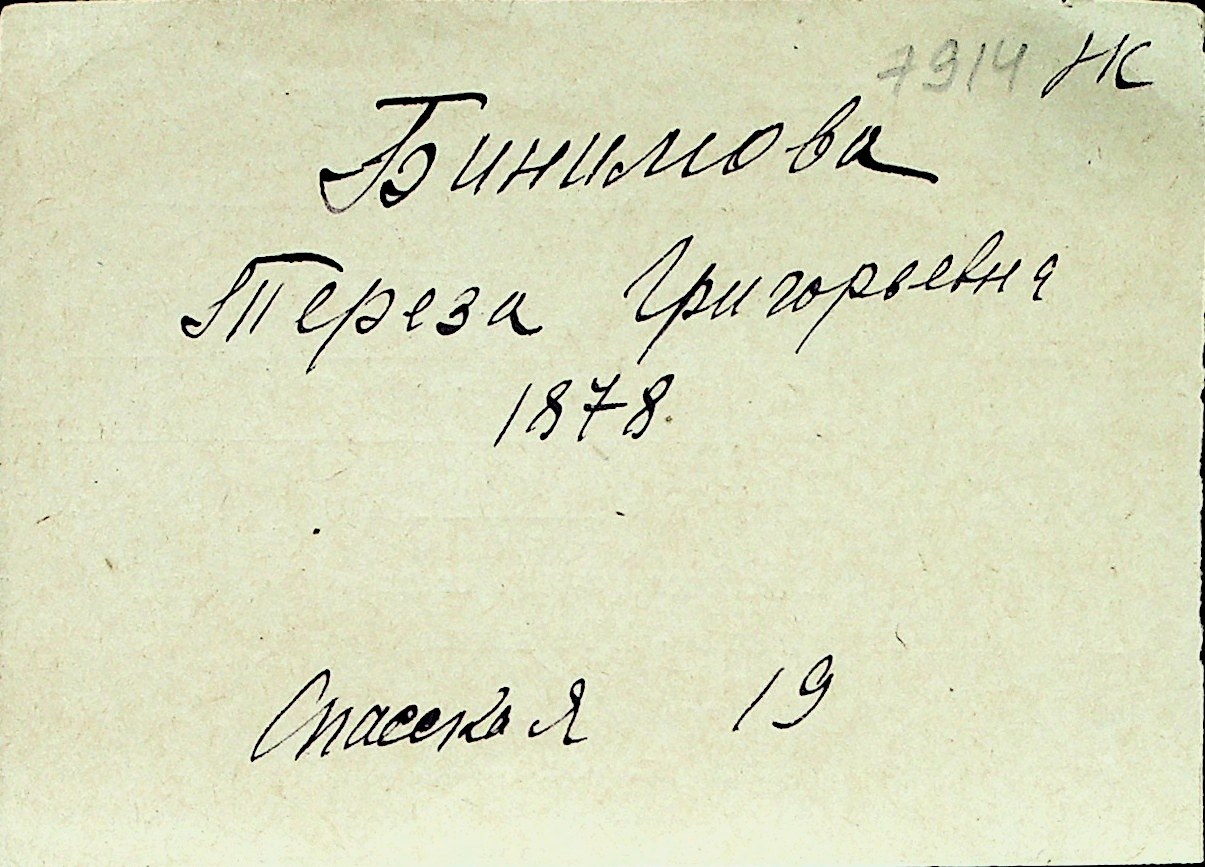 7914 НК
Бинимова
Тереза Григорьевна
1878
Спасская 19